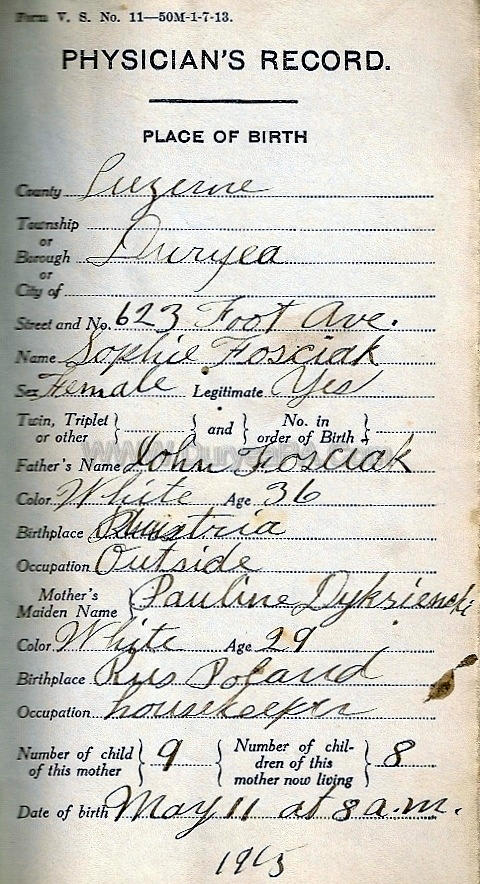 Form V. S. No. 11—50M-1-7-13.
PHYSICIAN'S RECORD.
PLACE OF BIRTH
County Luzerne
Township
or
Borough Duryea
or
City of
Street and No. 623 Foot Ave.
Name Sophie Fosciak
Sex Female Legitimate Yes
Twin, Triplet or other } { and } { No. in order of Birth }
Father's Name John Fosciak
Color White Age 36
Birthplace Austria
Occupation Outside
Mother's Maiden Name } Pauline Dykriencki
Color White Age 29
Birthplace Rus Poland
Occupation housekeeper
Number of child of this mother } 9 { Number of children of this mother now living } 8
Date of birth May 11 at 8 a.m.
1915